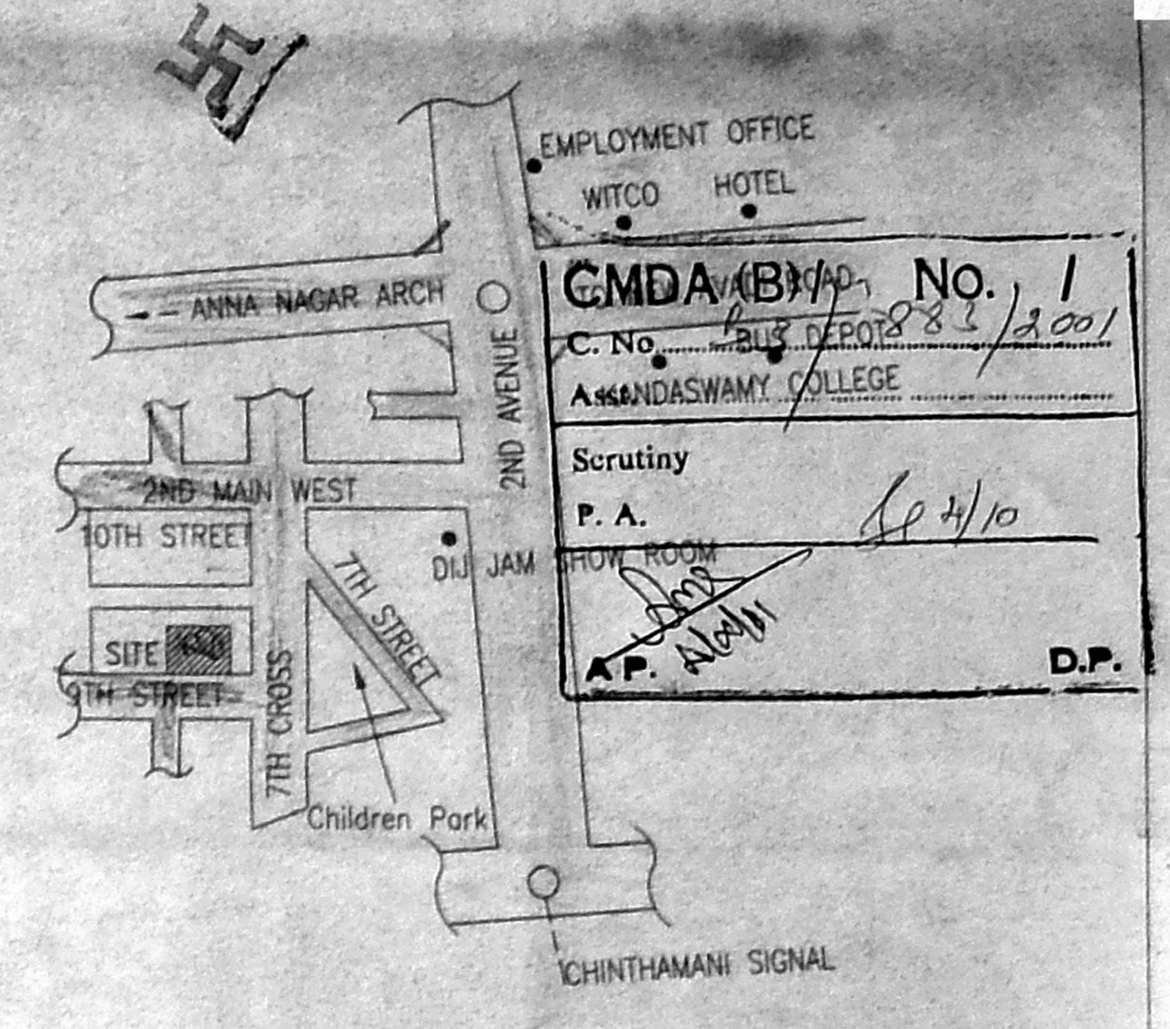 EMPLOYMENT OFFICE
WITCO HOTEL
ANNA NAGAR ARCH
2ND AVENUE
CMDA (B)/ No. 1
C. No. 883/2001
BUS DEPOT
KANDASWAMY COLLEGE
Scrutiny
P. A. 4/10
A.P. D.P.
2ND MAIN WEST
10TH STREET
DIJ JAM SHOW ROOM
7TH STREET
SITE
9TH STREET
7TH CROSS
Children Park
CHINTHAMANI SIGNAL